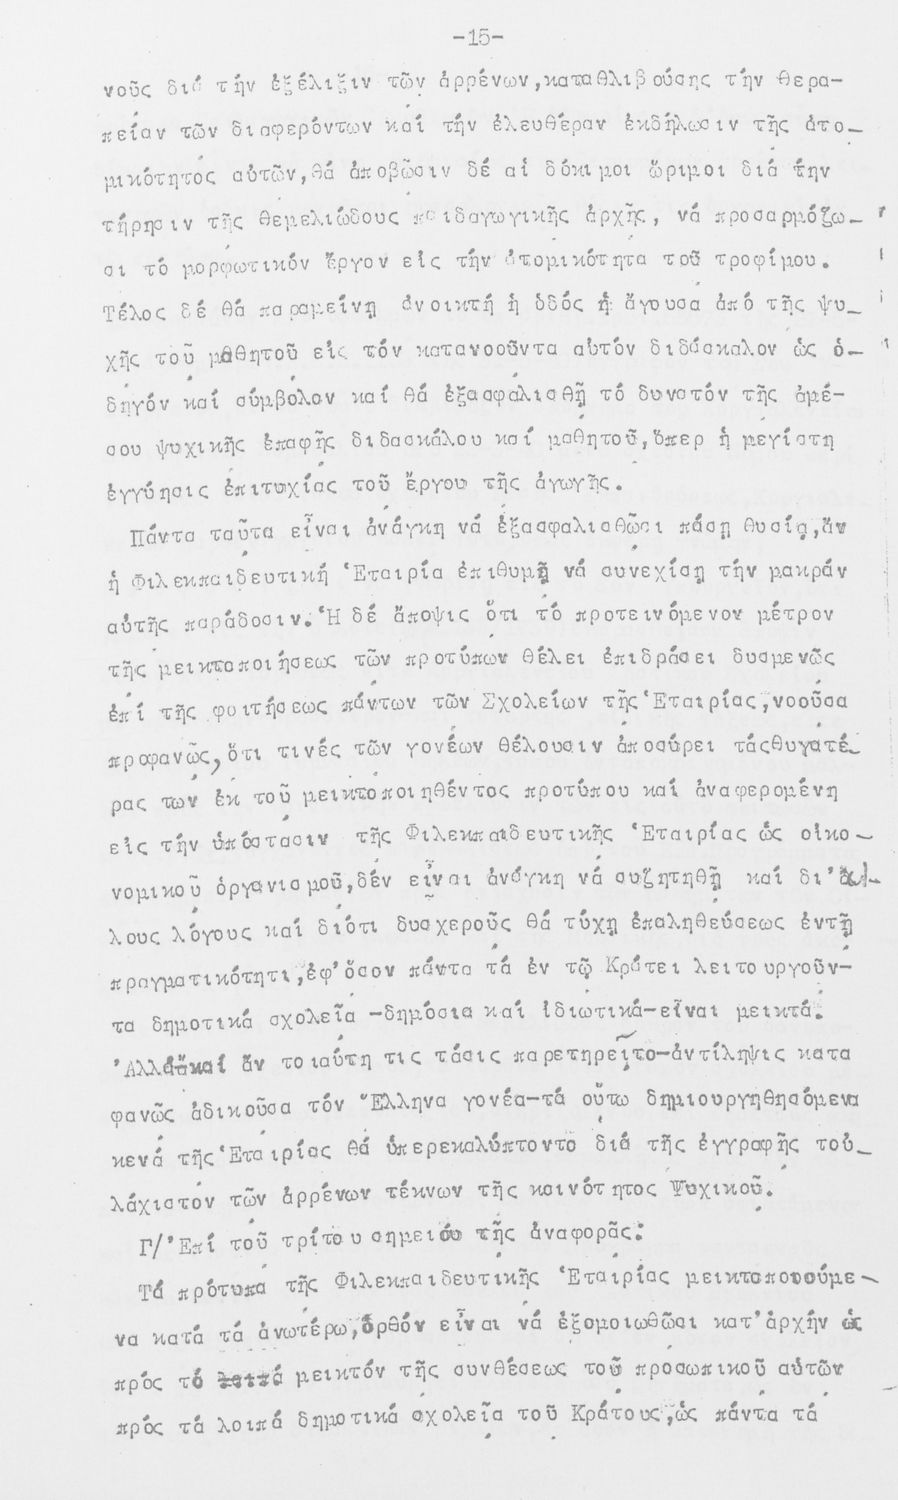 -15-
νοῦς διά τήν ἐξέλιξιν τῶν ἀρρένων,καταθλιβούσης τήν θερα-
πείαν τῶν διαφερόντων καί τήν ἐλευθέραν ἐκδήλωσιν τῆς ἀτο-
μικότητος αὐτῶν,θά ἀποβῶσιν δέ αἱ δόκιμοι ὥριμοι διά τήν
τήρησιν τῆς θεμελιώδους παιδαγωγικῆς ἀρχῆς, νά προσαρμόζω-
σι τό μορφωτικόν ἔργον εἰς τήν ἀτομικότητα τοῦ τροφίμου.
Τέλος δέ θά παραμείνῃ ἀνοικτή ἡ ὁδός ἡ ἄγουσα ἀπό τῆς ψυ-
χῆς τοῦ μαθητοῦ εἰς τόν κατανοοῦντα αὐτόν διδάσκαλον ὡς ὁ-
δηγόν καί σύμβολον καί θά ἐξασφαλισθῇ τό δυνατόν τῆς ἀμέ-
σου ψυχικῆς ἐπαφῆς διδασκάλου καί μαθητοῦ,ὅπερ ἡ μεγίστη
ἐγγύησις ἐπιτυχίας τοῦ ἔργου τῆς ἀγωγῆς.
Πάντα ταῦτα εἶναι ἀνάγκη νά ἐξασφαλισθῶσι πάσῃ θυσίᾳ,ἄν
ἡ Φιλεκπαιδευτική Ἑταιρία ἐπιθυμῇ νά συνεχίσῃ τήν μακράν
αὐτῆς παράδοσιν.Ἡ δέ ἄποψις ὅτι τό προτεινόμενον μέτρον
τῆς μεικτοποιήσεως τῶν προτύπων θέλει ἐπιδράσει δυσμενῶς
ἐπί τῆς φοιτήσεως πάντων τῶν Σχολείων τῆς Ἑταιρίας,νοοῦσα
προφανῶς,ὅτι τινές τῶν γονέων θέλουσιν ἀποσύρει τάςθυγατέ-
ρας των ἐκ τοῦ μεικτοποιηθέντος προτύπου καί ἀναφερομένη
εἰς τήν ὑπόστασιν τῆς Φιλεκπαιδευτικῆς Ἑταιρίας ὡς οἰκο-
νομικοῦ ὀργανισμοῦ,δέν εἶναι ἀνάγκη νά συζητηθῇ καί δι'ἄλ-
λους λόγους καί διότι δυσχεροῦς θά τύχῃ ἐπαληθεύσεως ἐντῇ
πραγματικότητι,ἐφ'ὅσον πάντα τά ἐν τῷ Κράτει λειτουργοῦν-
τα δημοτικά σχολεῖα -δημόσια καί ἰδιωτικά-εἶναι μεικτά.
Ἀλλά καί ἄν τοιαύτη τις τάσις παρετηρεῖτο-ἀντίληψις κατα
φανῶς ἀδικοῦσα τόν Ἕλληνα γονέα-τά οὕτω δημιουργηθησόμενα
κενά τῆς Ἑταιρίας θά ὑπερεκαλύπτοντο διά τῆς ἐγγραφῆς τοὐ-
λάχιστον τῶν ἀρρένων τέκνων τῆς κοινότητος Ψυχικοῦ.
Γ/'Ἐπί τοῦ τρίτου σημείου τῆς ἀναφορᾶς:
Τά πρότυπα τῆς Φιλεκπαιδευτικῆς Ἑταιρίας μεικτοποιούμε-
να κατά τά ἀνωτέρω,ὀρθόν εἶναι νά ἐξομοιωθῶσι κατ'ἀρχήν ὡς
πρός τό μεικτόν τῆς συνθέσεως τοῦ προσωπικοῦ αὐτῶν
πρός τά λοιπά δημοτικά σχολεῖα τοῦ Κράτους,ὡς πάντα τά